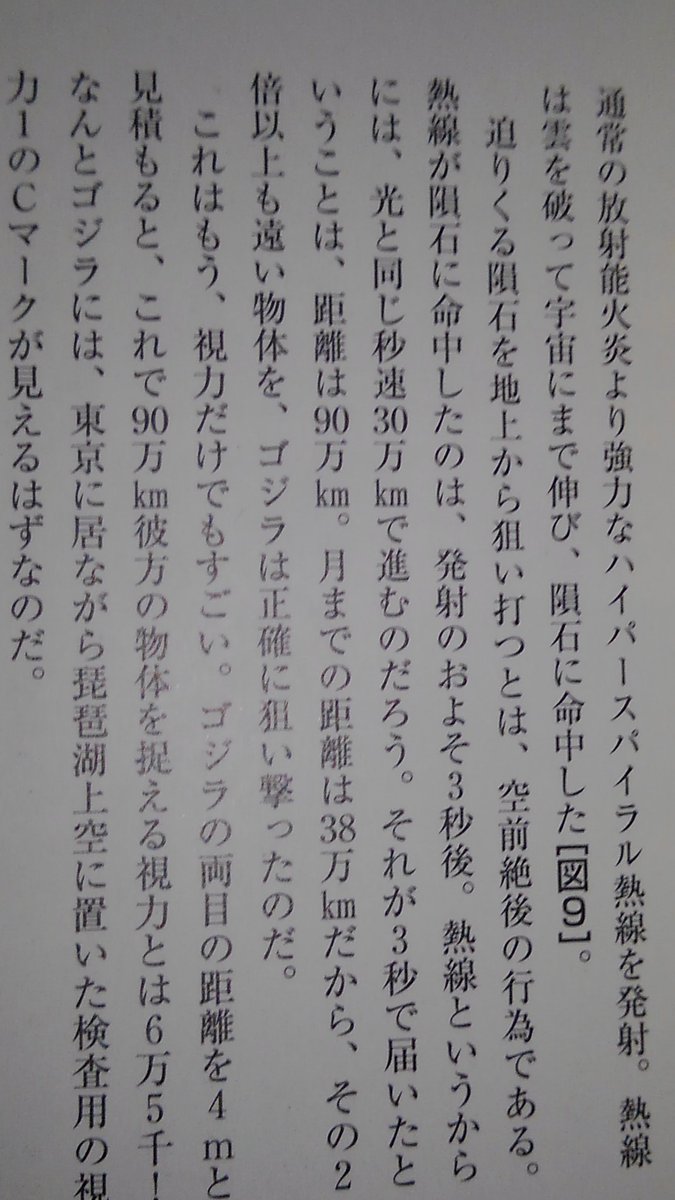 通常の放射能火炎より強力なハイパースパイラル熱線を発射。熱線
は雲を破って宇宙にまで伸び、隕石に命中した[図9]。
迫りくる隕石を地上から狙い打つとは、空前絶後の行為である。
熱線が隕石に命中したのは、発射のおよそ3秒後。熱線というから
には、光と同じ秒速30万kmで進むのだろう。それが3秒で届いたと
いうことは、距離は90万km。月までの距離は38万kmだから、その2
倍以上も遠い物体を、ゴジラは正確に狙い撃ったのだ。
これはもう、視力だけでもすごい。ゴジラの両目の距離を4mと
見積もると、これで90万km彼方の物体を捉える視力とは6万5千!
なんとゴジラには、東京に居ながら琵琶湖上空に置いた検査用の視
力1のCマークが見えるはずなのだ。